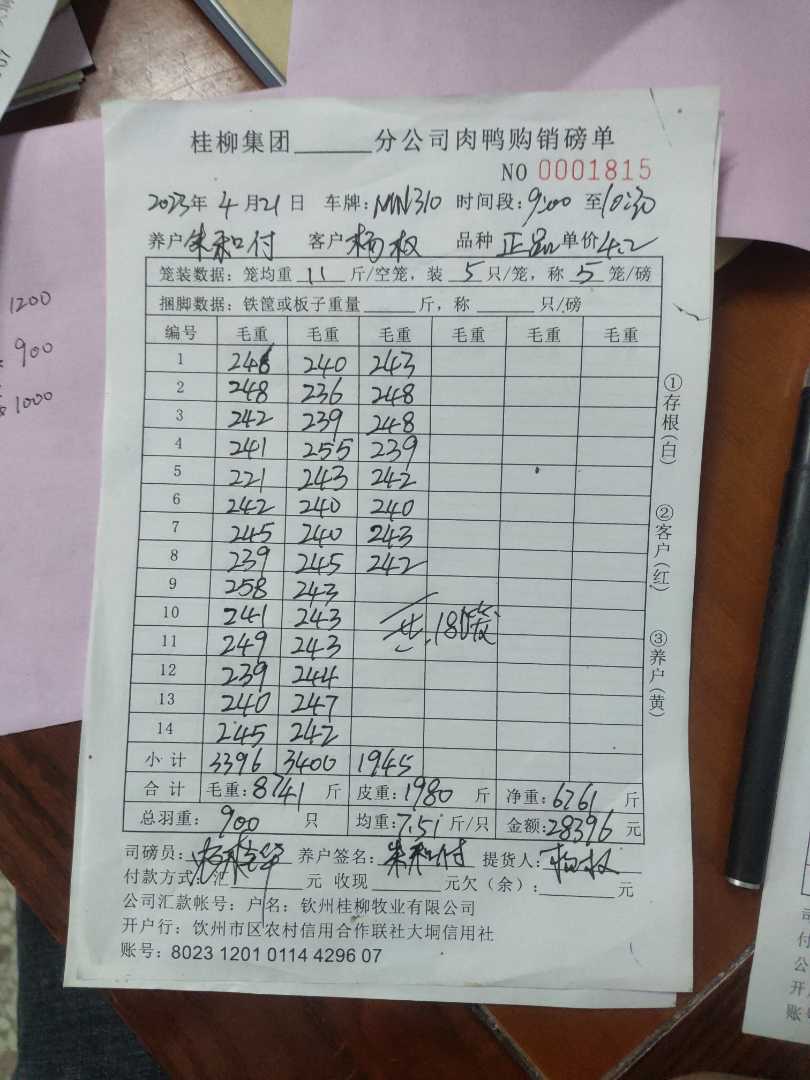 桂柳集团______分公司肉鸭购销磅单
NO 0001815
2023年 4月21日 车牌：MN310 时间段：9:00 至10:30
养户朱和付 客户杨权 品种 正品 单价4.2
笼装数据：笼均重 11 斤/空笼，装 5 只/笼，称 5 笼/磅
捆脚数据：铁筐或板子重量____斤，称____只/磅
编号 毛重 毛重 毛重 毛重 毛重 毛重
1 248 240 243
2 248 236 248
3 242 239 248
4 241 255 239
5 221 243 242
6 242 240 240
7 245 240 243
8 239 245 242
9 258 243
10 241 243 共180笼
11 249 243
12 239 244
13 240 247
14 245 242
小计 3396 3400 1945
合计 毛重：8741 斤 皮重：1980 斤 净重：6761 斤
总羽重：900 只 均重：7.51 斤/只 金额：28396 元
司磅员： 养户签名：朱和付 提货人：杨权
付款方式：汇____元 收现____元欠（余）：____元
公司汇款帐号：户名：钦州桂柳牧业有限公司
开户行：钦州市区农村信用合作联社大垌信用社
账号：8023 1201 0114 4296 07
①存根（白）
②客户（红）
③养户（黄）
1200
900
1000